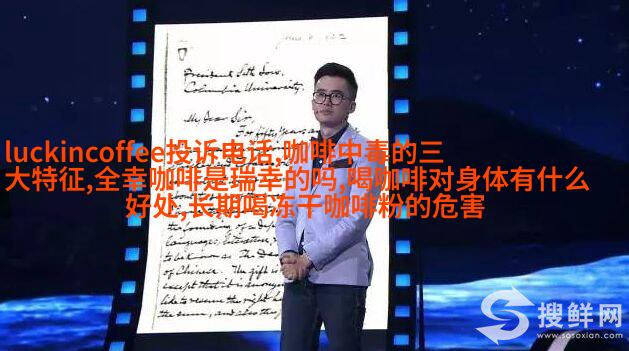 President Seth Low,
Columbia University.
My Dear Sir,
For fifty years an
luckincoffee投诉电话,咖啡中毒的三
大特征,全幸咖啡是瑞幸的吗,喝咖啡对身体有什么
好处,长期喝冻干咖啡粉的危害
the founding of a dep
Languages, Literature,
to be known as The Dea
of Chinese. The gift is
except that it is anonym
like to reserve the right
the sum, and also
搜鲜网
www.sosoxian.com